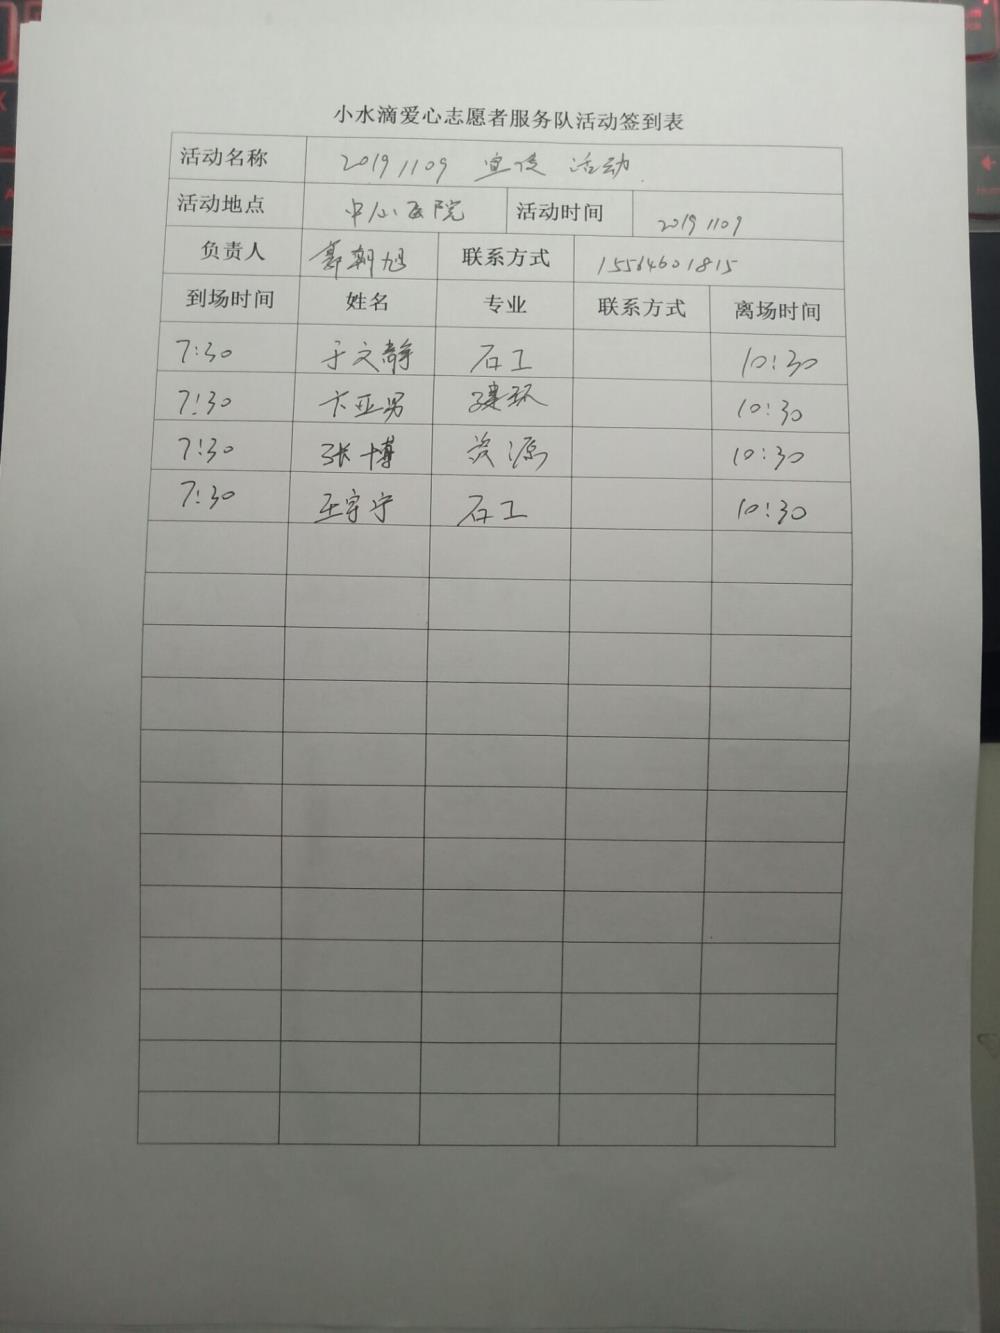 小水滴爱心志愿者服务队活动签到表
活动名称 20191109 宣传 活动
活动地点 中心医院 活动时间 20191109
负责人 郭朝旭 联系方式 15564601815
到场时间 姓名 专业 联系方式 离场时间
7:30 于文静 石工 10:30
7:30 卞亚男 建环 10:30
7:30 张博 资源 10:30
7:30 王宇宁 石工 10:30